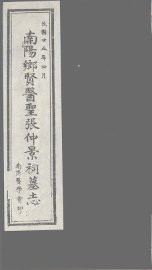 民國廿五年八月
南陽鄉賢醫聖張仲景祠墓志
南陽醫學會印